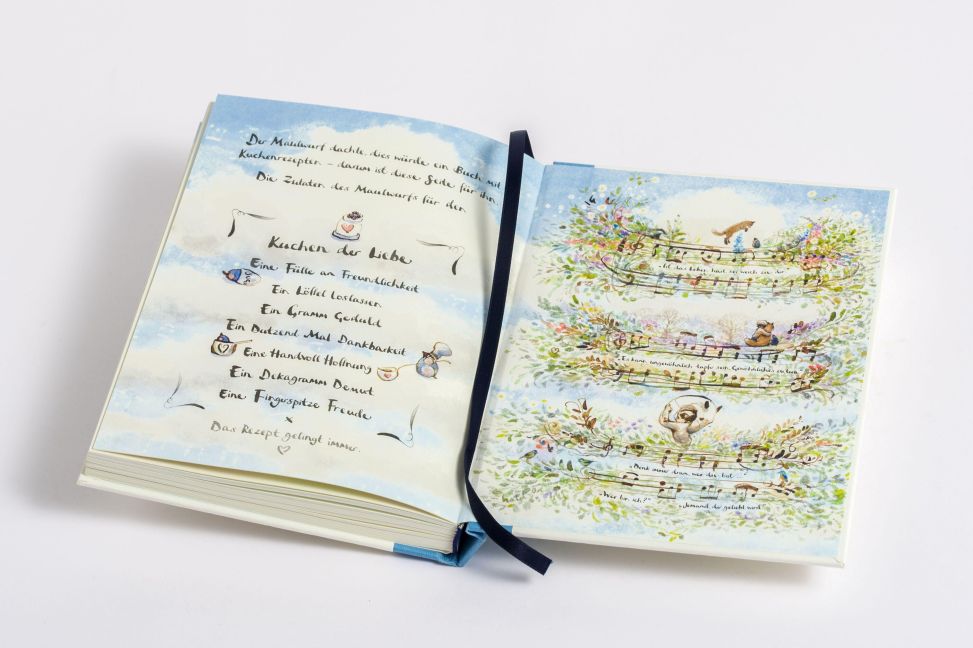 Der Maulwurf dachte, dies würde ein Buch mit
Kuchenrezepten – darum ist diese Seite für ihn.
Die Zutaten des Maulwurfs für den
Kuchen der Liebe
Eine Fülle an Freundlichkeit
Ein Löffel Loslassen
Ein Gramm Geduld
Ein Dutzend Mal Dankbarkeit
Eine Handvoll Hoffnung
Ein Dekagramm Demut
Eine Fingerspitze Freude
x
Das Rezept gelingt immer.
„Es kann ungewöhnlich tapfer sein, Gewöhnliches zu tun.“
„Denk immer dran, wer du bist.
„Wer bin ich?“
„Jemand, der geliebt wird.